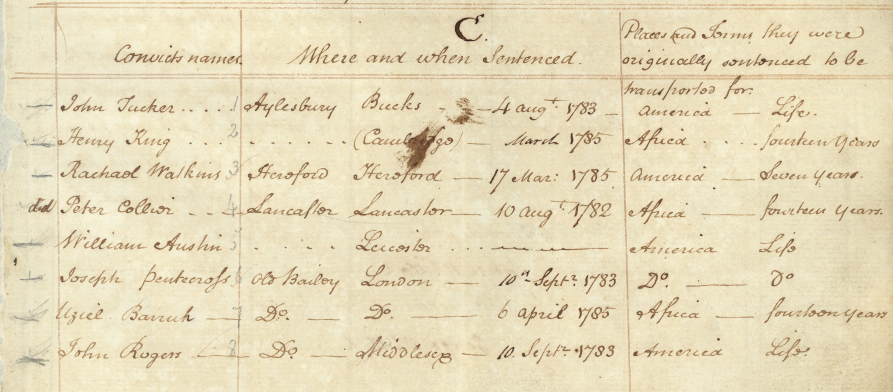 C.
Convicts names. Where and when Sentenced. Places and Terms they were originally sentenced to be transported for.
John Tucker .... 1 Aylesbury Bucks — 4 augt. 1783 — America — Life.
Henry King ... 2 ...... (Cambridge) — March 1785 Africa .... fourteen Years
Rachael Watkins 3 Hereford Hereford — 17 Mar: 1785 America — Seven Years.
dd Peter Collier .. 4 Lancaster Lancaster — 10 augt. 1782 Africa — fourteen Years.
William Austin 5 .... Leicester ... — America Life
Joseph Pentecross 6 Old Bailey London — 10th Septr. 1783 Do. — Do
Uziel Barruh — 7 Do. — Do. — 6 april 1785 Africa — fourteen Years
John Rogers — 8 Do — Middlesex — 10. Septr. 1783 America Life.